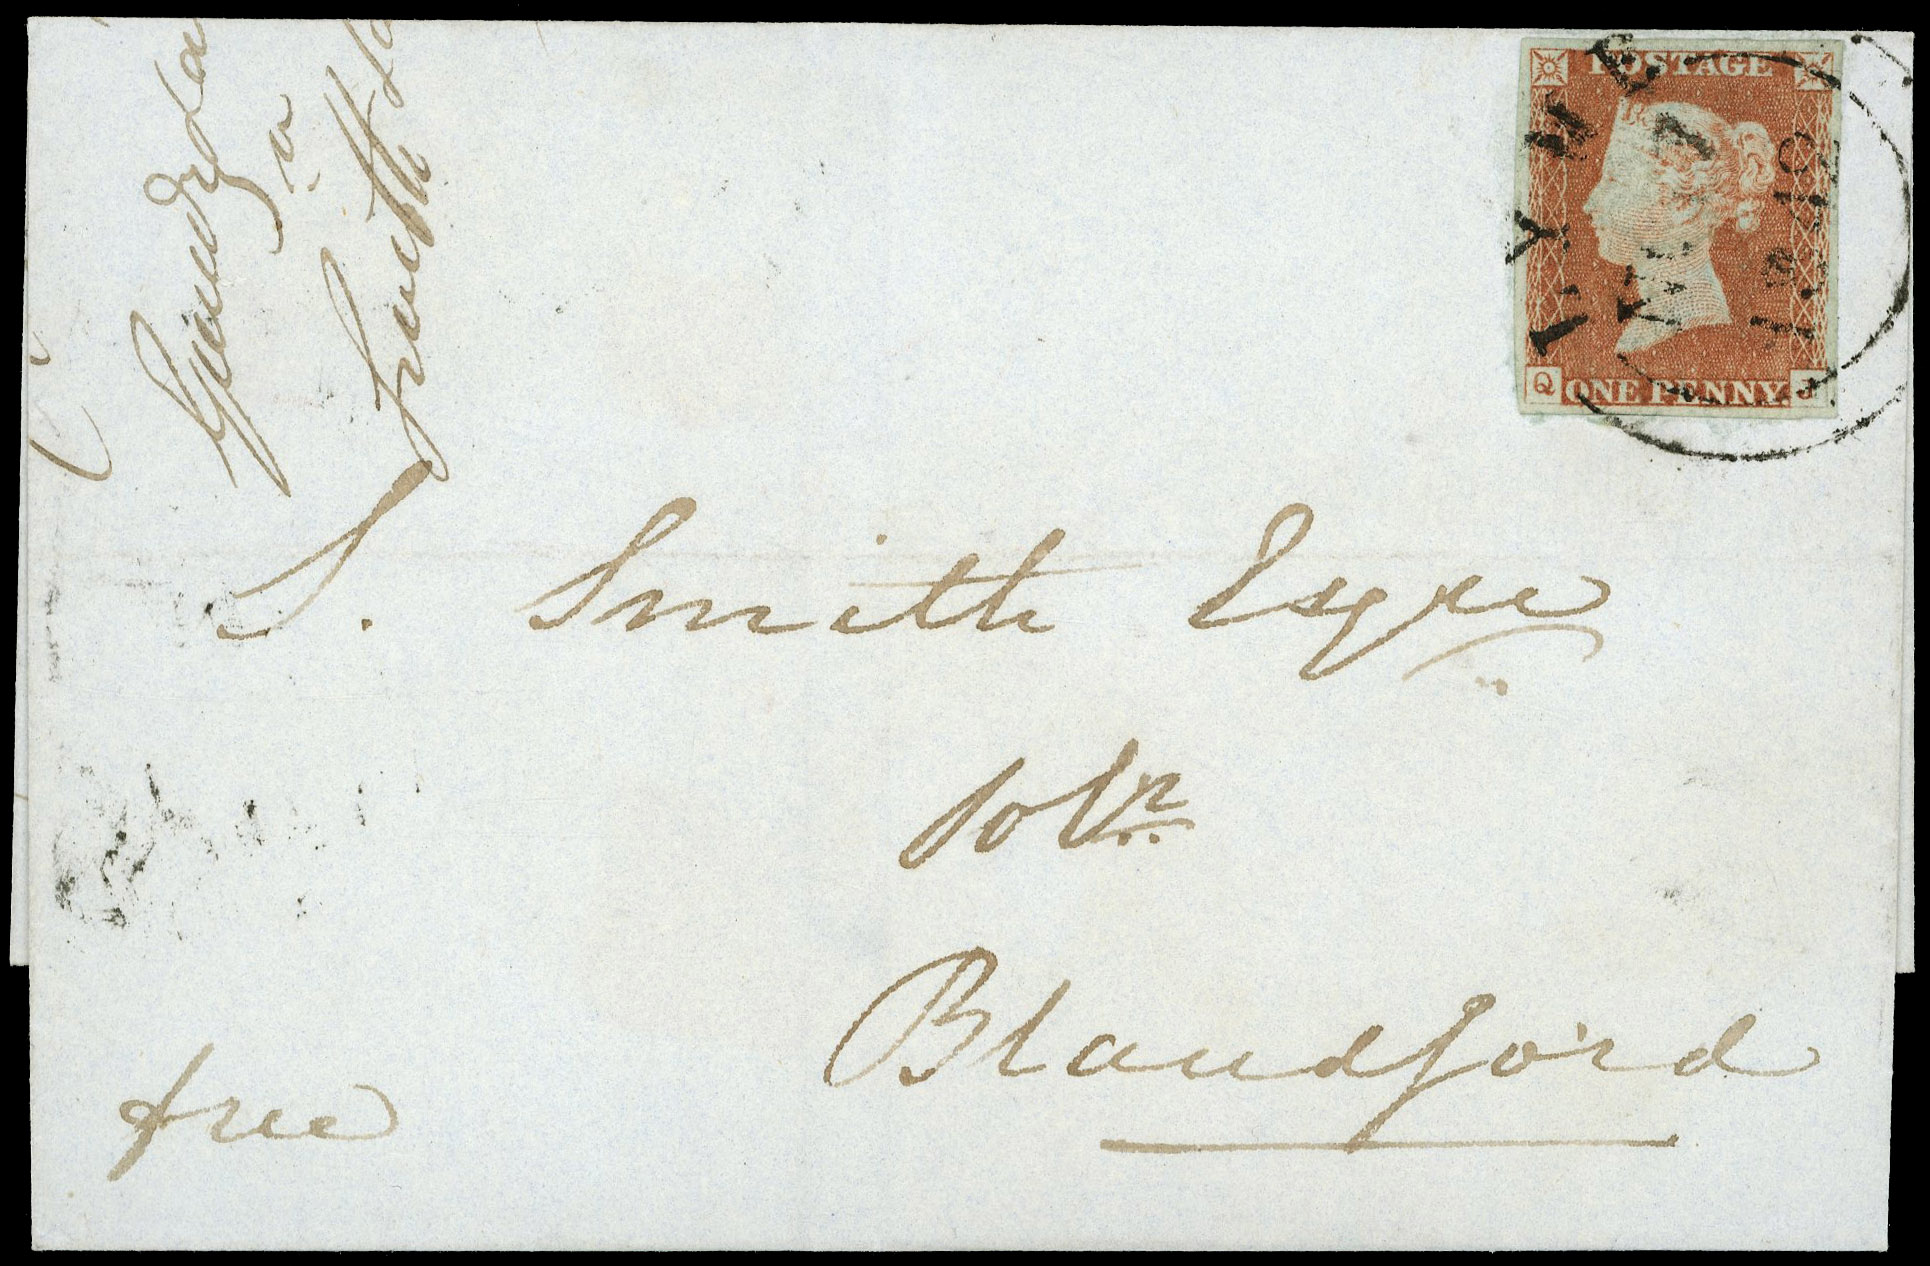 POSTAGE
LYME
1842
Q ONE PENNY. J
S. Smith Esqre
Solr
Blandford
free